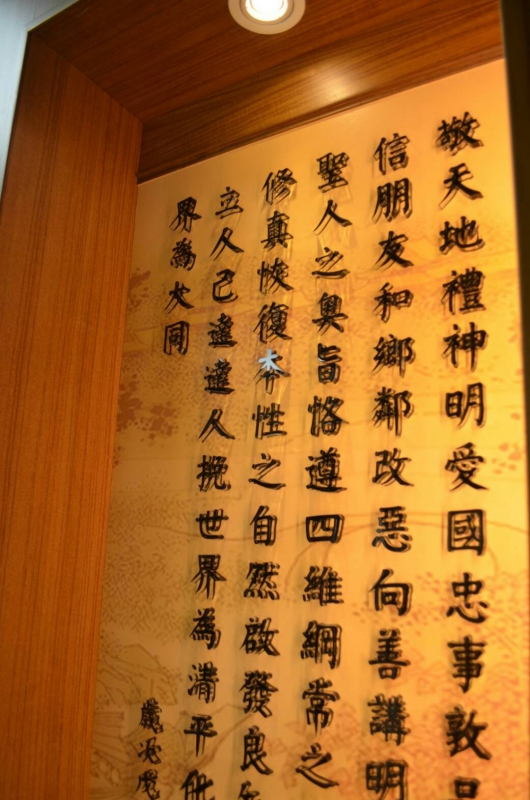 敬天地禮神明愛國忠事敦
信朋友和鄉鄰改惡向善講明
聖人之奧旨恪遵四維綱常之
修真恢復本性之自然啟發良
立人己達達人挽世界為清平
界為大同